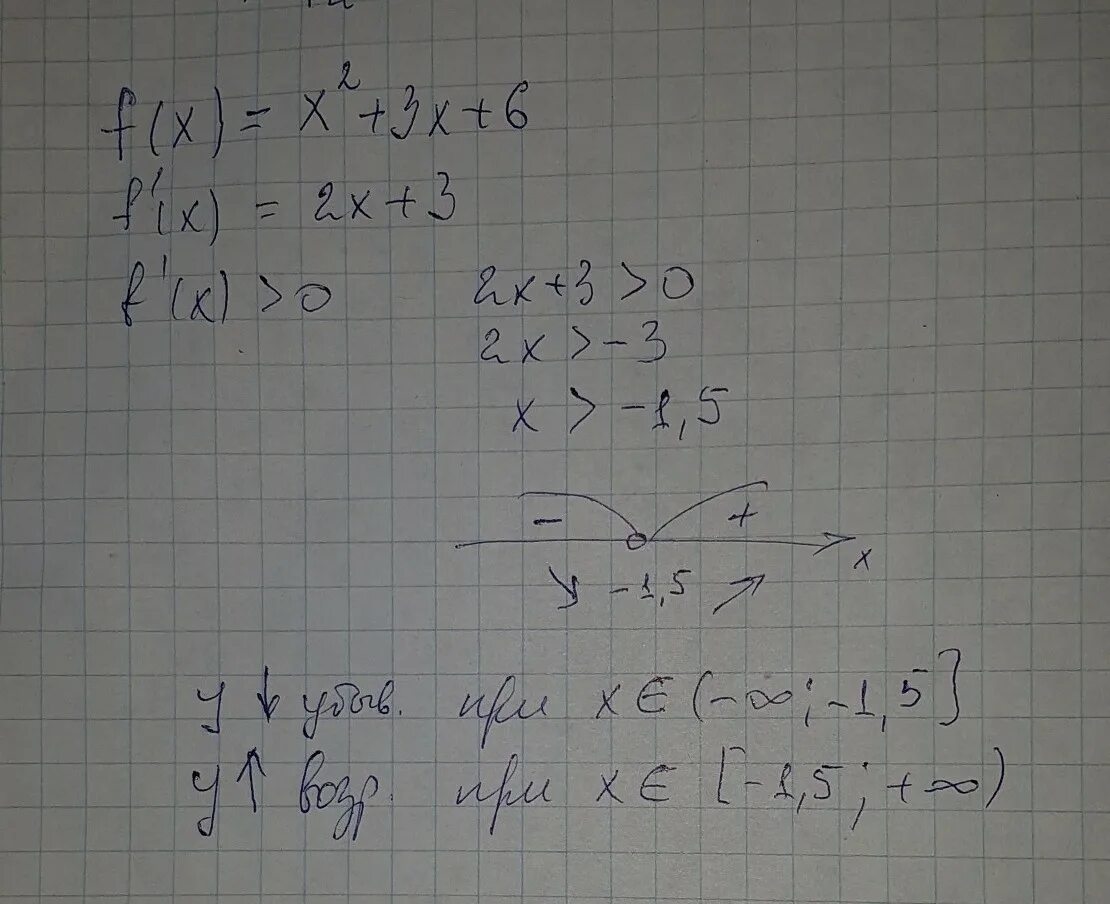 f(x) = x² + 3x + 6
f'(x) = 2x + 3
f'(x) > 0 2x + 3 > 0
2x > -3
x > -1,5
- +
x
↘ -1,5 ↗
y ↓ убыв. при x ∈ (-∞; -1,5]
y ↑ возр. при x ∈ [-1,5; +∞)